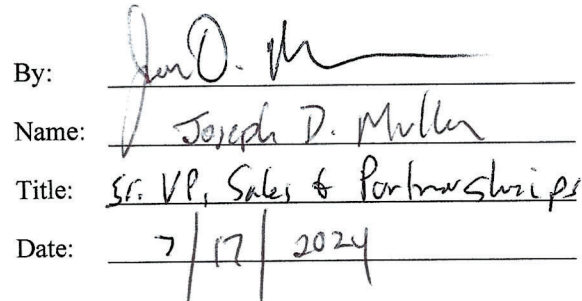 By: Joe D. M
Name: Joseph D. Muller
Title: Sr. VP, Sales & Partnerships
Date: 7/17/2024